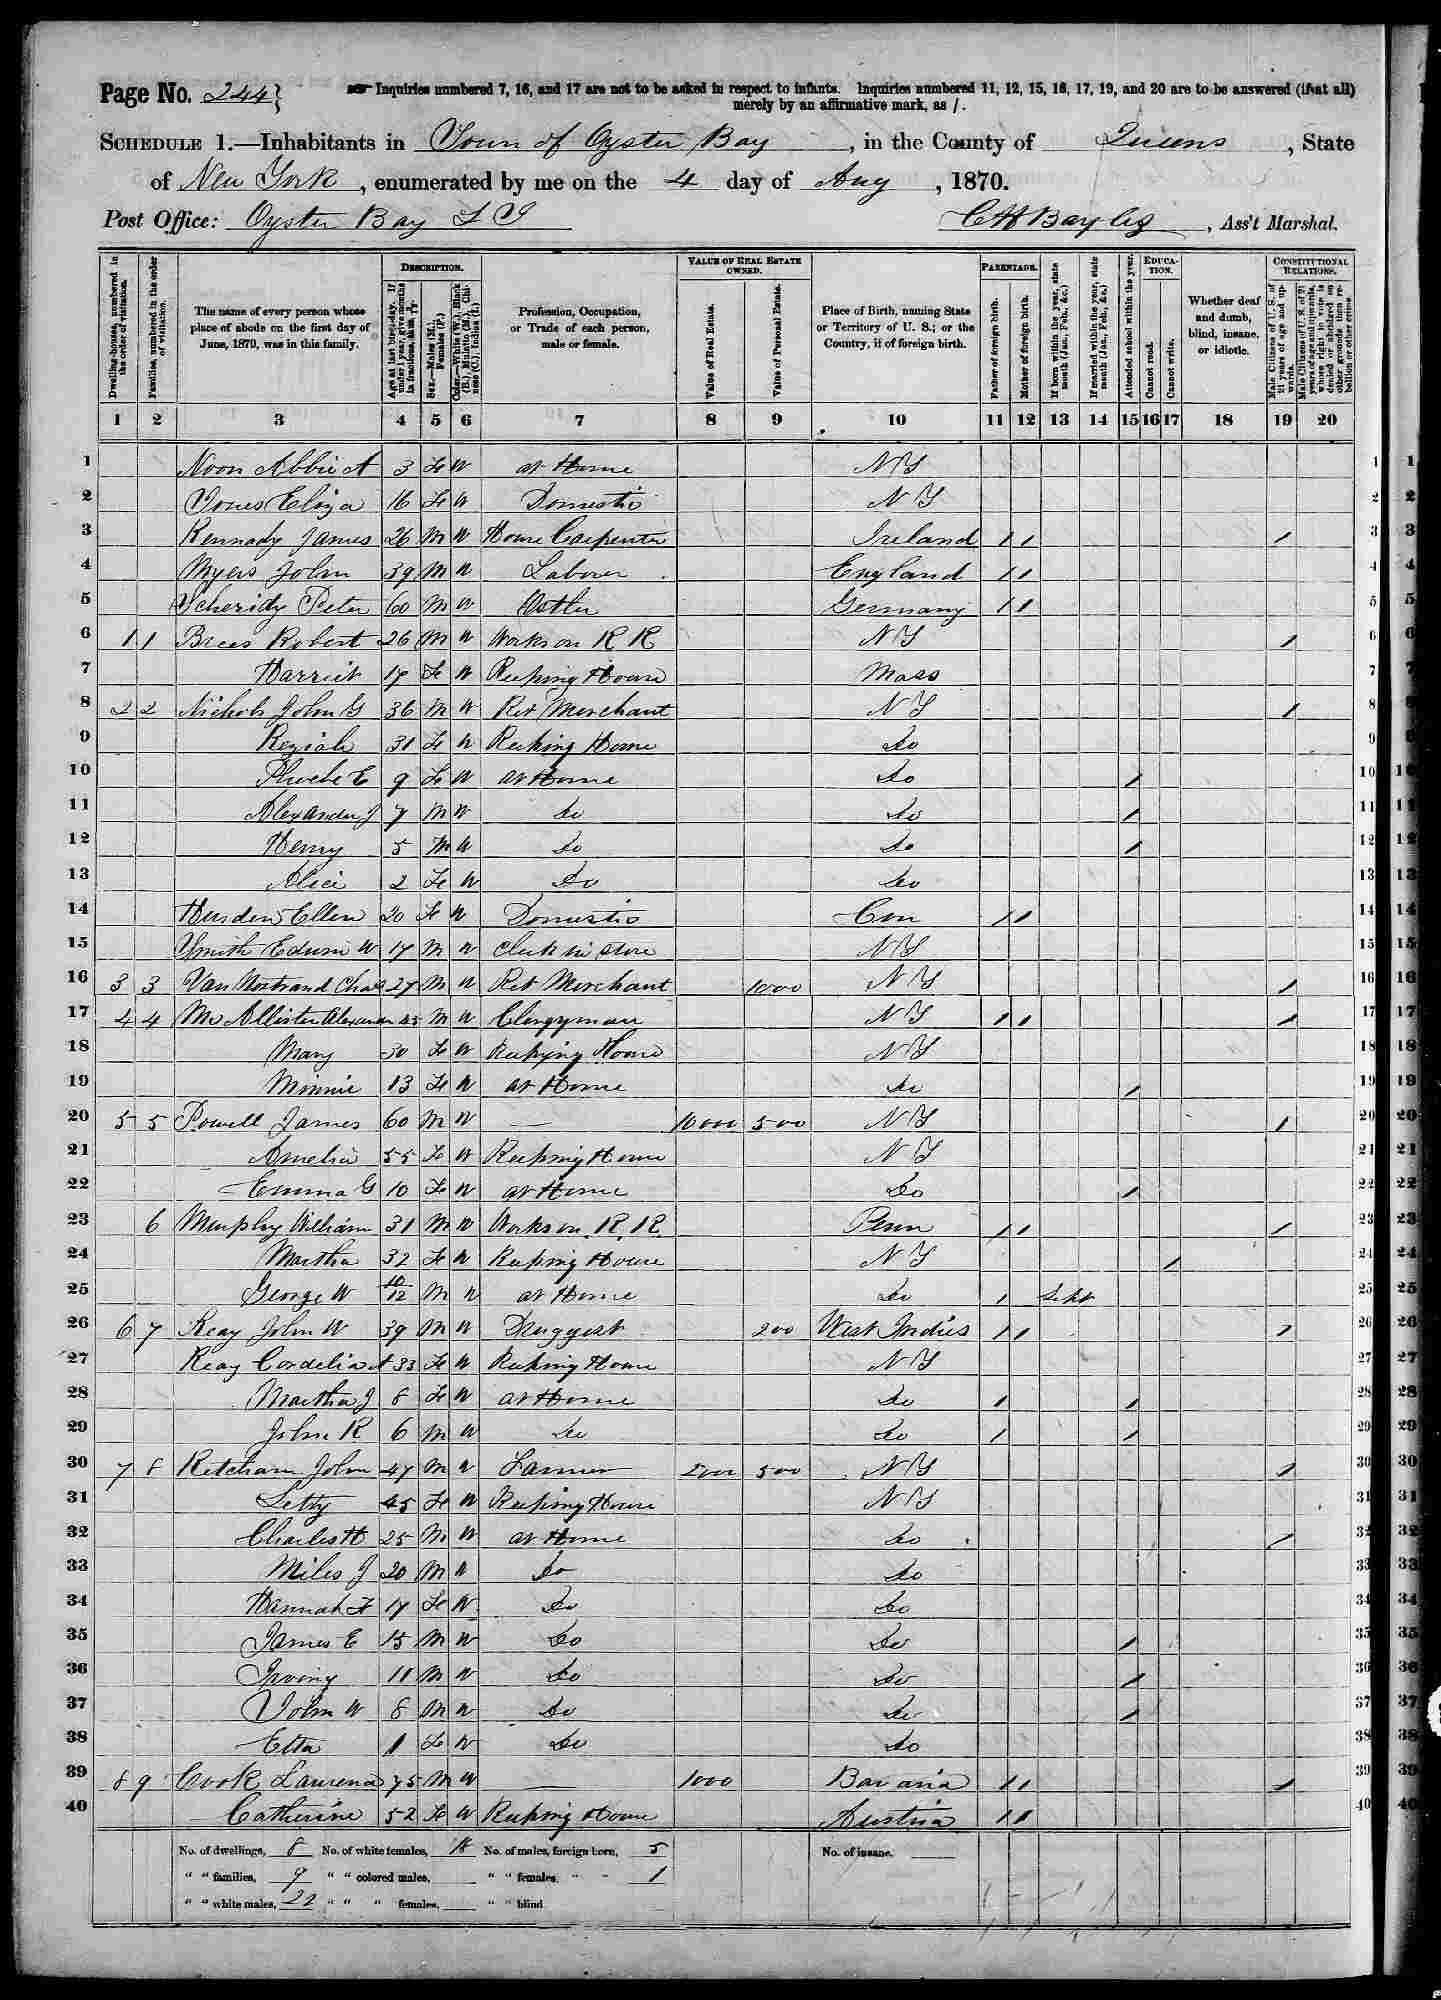 Page No. 244
Inquiries numbered 7, 16, and 17 are not to be asked in respect to infants. Inquiries numbered 11, 12, 15, 16, 17, 19, and 20 are to be answered (if at all)
merely by an affirmative mark, as /.
SCHEDULE 1.—Inhabitants in Town of Oyster Bay, in the County of Queens, State
of New York, enumerated by me on the 4 day of Aug, 1870.
Post Office: Oyster Bay L I C H Bayles, Ass't Marshal.
Dwelling-houses, numbered in the order of visitation.
Families, numbered in the order of visitation.
The name of every person whose place of abode on the first day of June, 1870, was in this family.
DESCRIPTION.
Age at last birth-day. If under 1 year, give months in fractions, thus, 3/12
Sex.—Males (M.), Females (F.)
Color.—White (W.), Black (B.), Mulatto (M.), Chinese (C.), Indian (I.)
Profession, Occupation, or Trade of each person, male or female.
VALUE OF REAL ESTATE OWNED.
Value of Real Estate.
Value of Personal Estate.
Place of Birth, naming State or Territory of U. S.; or the Country, if of foreign birth.
PARENTAGE.
Father of foreign birth.
Mother of foreign birth.
If born within the year, state month (Jan., Feb., &c.)
If married within the year, state month (Jan., Feb., &c.)
EDUCATION.
Attended school within the year.
Cannot read.
Cannot write.
Whether deaf and dumb, blind, insane, or idiotic.
CONSTITUTIONAL RELATIONS.
Male Citizens of U. S. of 21 years of age and upwards.
Male Citizens of U. S. of 21 years of age and upwards, whose right to vote is denied or abridged on other grounds than rebellion or other crime.
1 2 3 4 5 6 7 8 9 10 11 12 13 14 15 16 17 18 19 20
1 Noon Abbie A 3 Fe W at Home N Y 1
2 Jones Eliza 16 Fe W Domestic N Y 2
3 Kennady James 26 M W House Carpenter Ireland / / / 3
4 Myers John 39 M W Laborer England / / 4
5 Peter 60 M W Ostler Germany / / 5
6 1 1 Brees Robert 26 M W Works on R R N Y / 6
7 Harriet 17 Fe W Keeping House Mass 7
8 2 2 Nichols John G 36 M W Ret Merchant N Y / 8
9 Keziah 31 Fe W Keeping House Do 9
10 Phoebe E 9 Fe W at Home Do / 10
11 Alexander J 7 M W Do Do / 11
12 Henry 5 M W Do Do / 12
13 Alice 2 Fe W Do Do 13
14 Ellen 20 Fe W Domestic Con / / 14
15 Smith Edwin W 17 M W Clerk in Store N Y 15
16 3 3 Van Nostrand Chas 27 M W Ret Merchant 1000 N Y / 16
17 4 4 Mc Allister Alexander 45 M W Clergyman N Y / / / 17
18 Mary 30 Fe W Keeping House N Y 18
19 Minnie 13 Fe W at Home Do / 19
20 5 5 Powell James 60 M W — 10000 500 N Y / 20
21 Amelia 55 Fe W Keeping House N Y 21
22 Emma G 10 Fe W at Home Do / 22
23 6 Murphy William 31 M W Works on R. R. Penn / / / 23
24 Martha 32 Fe W Keeping House N Y / 24
25 George W 10/12 M W at Home Do / Sept 25
26 6 7 Keay John W 39 M W Druggist 200 West Indies / / / 26
27 Keay Cordelia A 33 Fe W Keeping House N Y 27
28 Martha J 8 Fe W at Home Do / / 28
29 John R 6 M W Do Do / / 29
30 7 8 Ketcham John 47 M W Farmer 5000 500 N Y / 30
31 Letty 45 Fe W Keeping House N Y 31
32 Charles H 25 M W at Home Do / 32
33 Miles J 20 M W Do Do 33
34 Hannah F 17 Fe W Do Do 34
35 James E 15 M W Do Do / 35
36 Irving 11 M W Do Do / 36
37 John W 8 M W Do Do / 37
38 Etta 1 Fe W Do Do 38
39 8 9 Cook Laurena 75 M W — 1000 Bavaria / / / 39
40 Catherine 52 Fe W Keeping House Austria / / 40
No. of dwellings, 8 No. of white females, 18 No. of males, foreign born, 5 No. of insane.
" " families, 9 " " colored males, " " females, " " 1
" " white males, 22 " " " females, " " blind